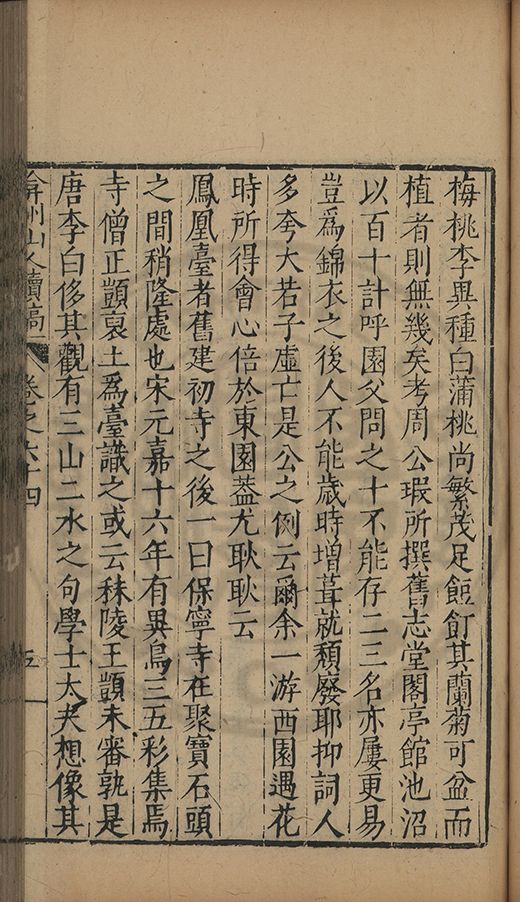 梅桃李異種白蒲桃尚繁茂足餖飣其蘭菊可盆而
植者則無幾矣考周公瑕所撰舊志堂閣亭館池沼
以百十計呼園父問之十不能存二三名亦屢更易
豈爲錦衣之後人不能歲時增葺就頹廢耶抑詞人
多夸大若子虛亡是公之例云爾余一游西園遇花
時所得會心倍於東園葢尤耿耿云
鳳凰臺者舊建初寺之後一曰保寧寺在聚寶石頭
之間稍隆處也宋元嘉十六年有異鳥三五彩集焉
寺僧正顗裒土爲臺識之或云秣陵王顗未審孰是
唐李白侈其觀有三山二水之句學士大夫想像其
弇州山人續稿 卷之六十四 五